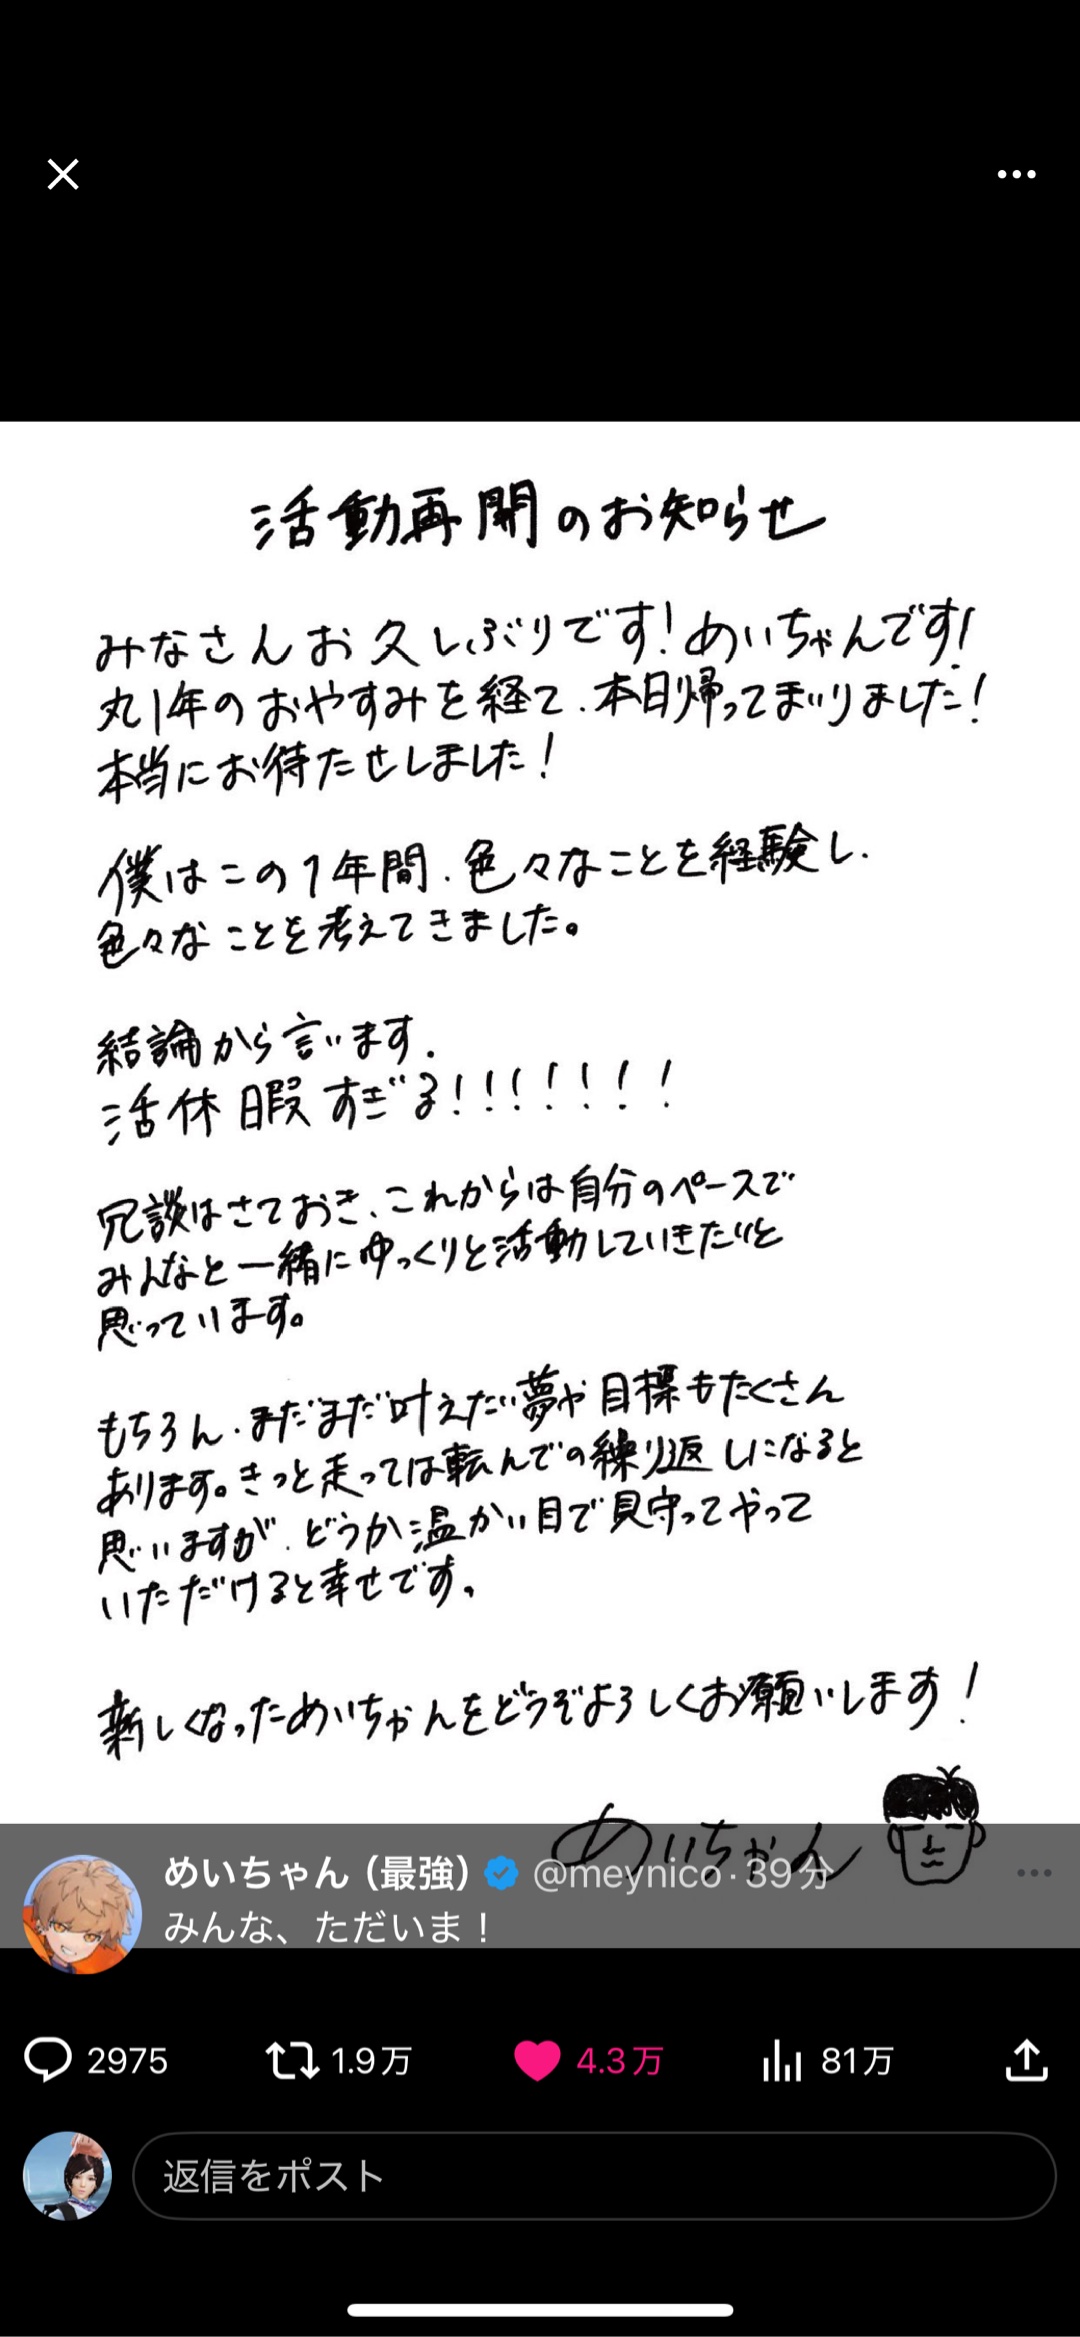 活動再開のお知らせ
みなさんお久しぶりです!めいちゃんです!
丸1年のおやすみを経て、本日帰ってまいりました!
本当にお待たせしました!
僕はこの1年間、色々なことを経験し、
色々なことを考えてきました。
結論から言います、
活休暇すぎる!!!!!!!
冗談はさておき、これからは自分のペースで
みんなと一緒にゆっくりと活動していきたいと
思っています。
もちろん、まだまだ叶えたい夢や目標もたくさん
あります。きっと走っては転んでの繰り返しになると
思いますが、どうか温かい目で見守ってやって
いただけると幸せです。
新しくなっためいちゃんをどうぞよろしくお願いします!
めいちゃん
めいちゃん(最強) @meynico·39分
みんな、ただいま!
2975 1.9万 4.3万 81万
返信をポスト